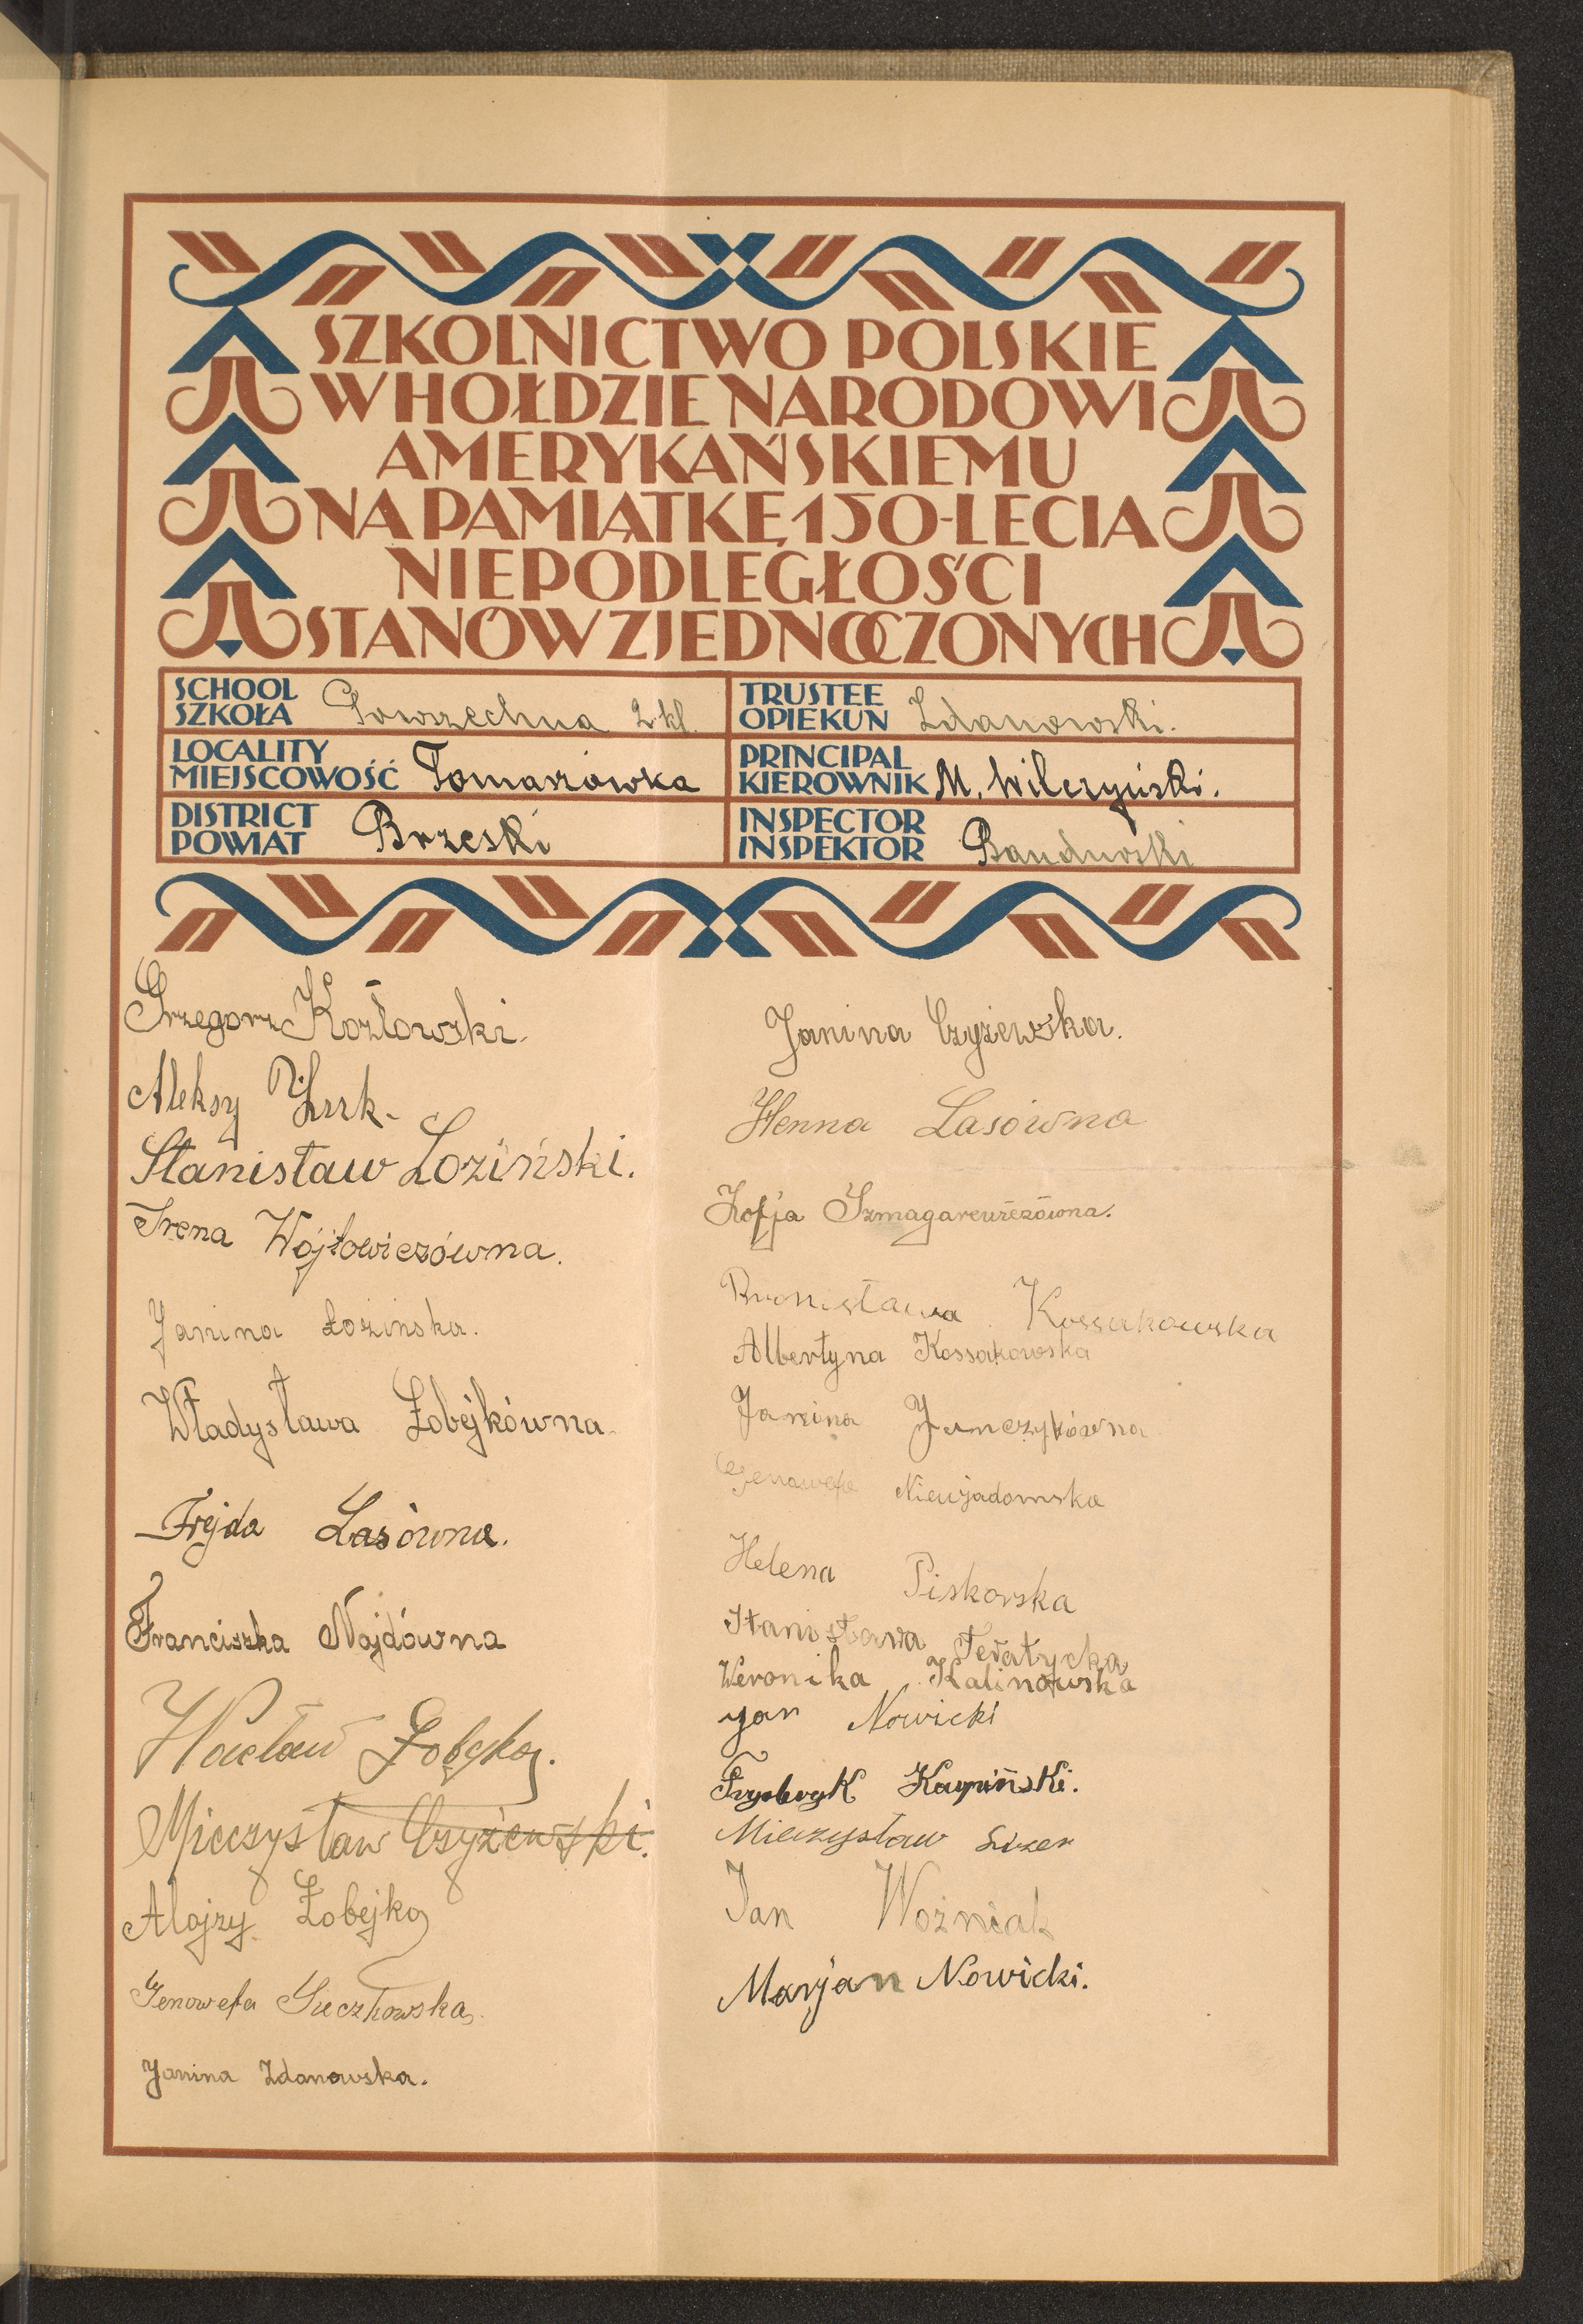 SZKOLNICTWO POLSKIE
W HOŁDZIE NARODOWI
AMERYKAŃSKIEMU
NA PAMIĄTKĘ 150-LECIA
NIEPODLEGŁOŚCI
STANÓW ZJEDNOCZONYCH
SCHOOL
SZKOŁA Powszechna 2 kl.
TRUSTEE
OPIEKUN Zdanowski.
LOCALITY
MIEJSCOWOŚĆ Tomaszówka
PRINCIPAL
KIEROWNIK M. Wilczyński.
DISTRICT
POWIAT Brzeski
INSPECTOR
INSPEKTOR Bandurski
Grzegorz Kozłowski.
Aleksy
Stanisław Łoziński.
Irena Wójtowiczówna.
Janina Łozinska.
Władysława Łobejkówna.
Frejda Lasówna.
Franciszka Nojdówna
Wacław Łobejko.
Mieczysław Czyżewski.
Alojzy Łobejko
Genowefa Suczkowska.
Janina Zdanowska.
Janina Czyżewska.
Henna Lasówna
Zofja
Bronisława Kossakowska
Albertyna Kossakowska
Janina Janczykówna
Genowefa Niewjadomska
Helena Piskorska
Stanisława Tewatycka
Weronika Kalinowska
Jan Nowicki
Frydryk Karpiński.
Mieczysław Lizer
Jan Woźniak
Marjan Nowicki.